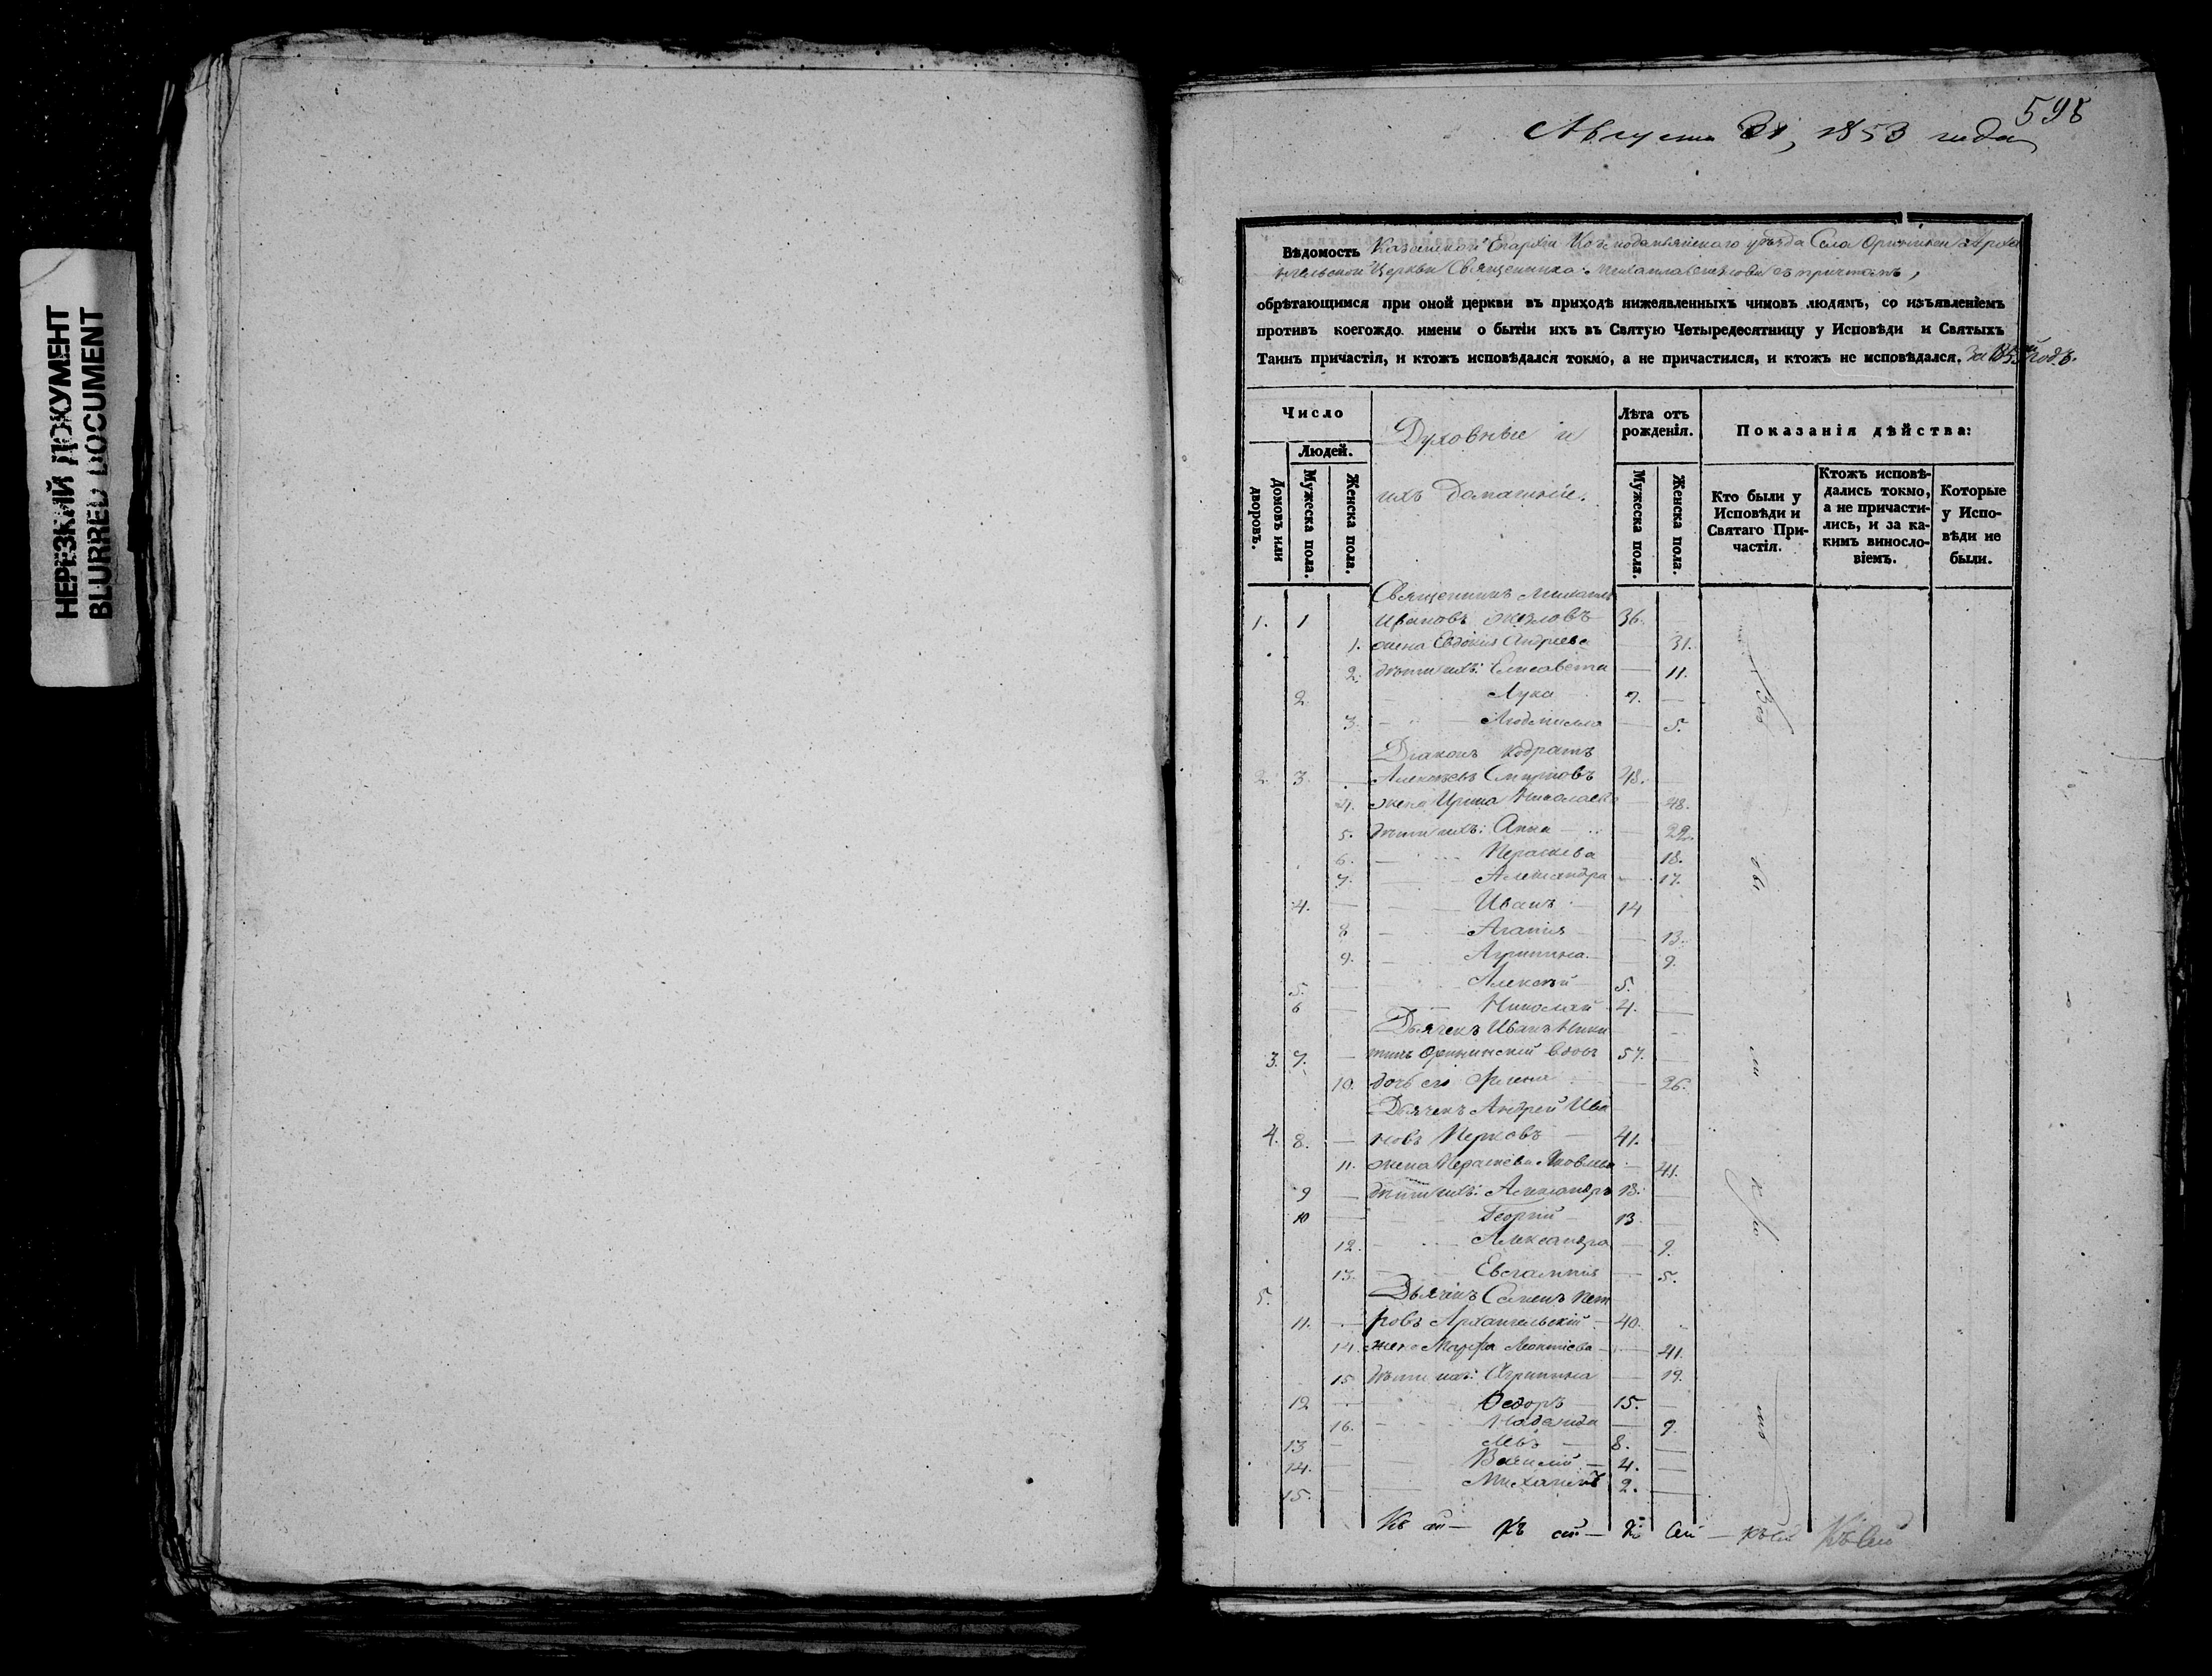 НЕРЕЗКИЙ ДОКУМЕНТ
BLURRED DOCUMENT
598
Августа 31, 1853 года
Вѣдомость Казанской Епархіи Козмодемьянскаго уѣзда Села Оринина Арха
нгельской Церкви Священника Михаила съ причтомъ,
обрѣтающимся при оной церкви въ приходѣ нижеявленныхъ чиновъ людямъ, со изъявленіемъ
противъ коегождо имени о бытіи ихъ въ Святую Четыредесятницу у Исповѣди и Святыхъ
Таинъ причастія, и ктожъ исповѣдался токмо, а не причастился, и ктожъ не исповѣдался. За 1853й годъ.
Число
Людей.
Домовъ или дворовъ.
Мужеска пола.
Женска пола.
Духовные и
ихъ домашніе.
Лѣта отъ рожденія.
Мужеска пола.
Женска пола.
Показанія дѣйства:
Кто были у Исповѣди и Святаго Причастія.
Ктожъ исповѣ-
дались токмо,
а не причасти-
лись, и за ка-
кимъ винословіемъ.
Которые
у Испо-
вѣди не
были.
Священникъ Михаилъ
1. 1 Ивановъ 36.
1. жена Евдокія Андреева 31.
2. дѣти ихъ: Елисавета — 11.
2 Лука 7. —
3. Людмила — 5.
Діаконъ Кодратъ
2. 3. Алексѣевъ Смирновъ 48.
4. жена Ирина Николаева 48.
5. дѣти ихъ: Анна — 22.
6. Параскева 18.
7. Александра — 17.
4. Иванъ — 14
8 Агапія — 13.
9. Агрипина — 9.
5. Алексѣй — 5.
6 Николай 4.
Дьячекъ Иванъ Ники
3. 7. — тинъ Орининскій вдовъ 57.
10. дочь его Елена — 26.
Дьячекъ Андрей Ива
4. 8. — новъ Перховъ — 41.
11. жена Параскева Яковлева — 41.
9 — дѣти ихъ: Александръ 13.
10 Георгій 13.
12. Александра — 9.
13. Евлампія — 5.
Дьячекъ Семенъ Пет
5.
11. — ровъ Архангельскій — 40.
14. жена Марфа Леонтіева — 41.
15 дѣти ихъ: Агрипина — 19.
12 Ѳедоръ 15. —
16. Надежда — 9.
13 — Левъ — 8. —
14. Василій — 4. —
15. Михаилъ 2. —